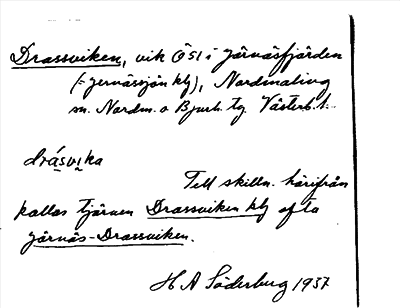 Drassviken, vik ÖSI i Järnäsfjärden
(= Jernässjön kbl), Nordmaling
sn. Nordm. o Bjurh. tg. Västerb. l.
drásvika
Till skilln. härifrån
kallas tjärnen Drassviken kbl ofta
Järnäs-Drassviken.
H A Söderberg 1937